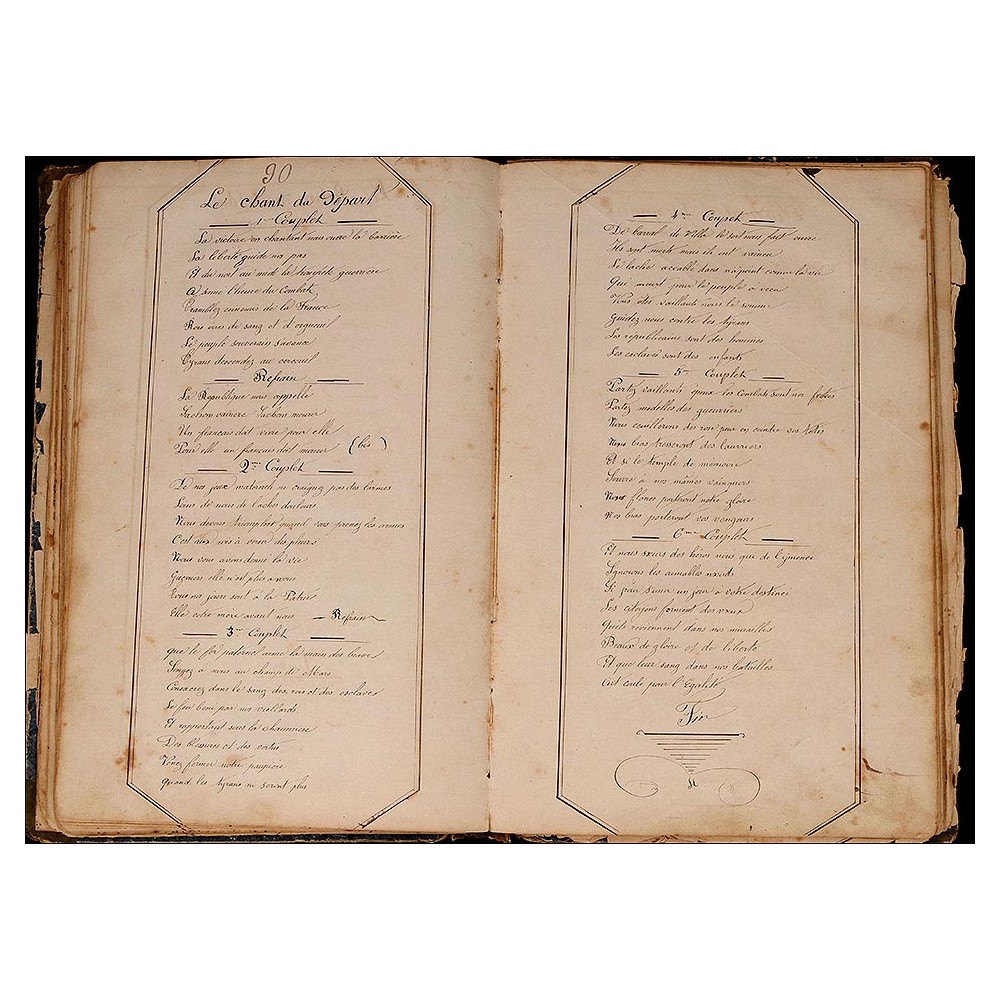 90
Le chant du Départ
1er Couplet
La victoire en chantant nous ouvre la barrière
La liberté guide nos pas
Et du nord au midi la trompette guerrière
A sonné l'heure du Combat
Tremblez ennemis de la France
Rois ivres de sang et d'orgueil
Le peuple souverain s'avance
Tyrans descendez au cercueil
Refrain
La République nous appelle
Sachon vaincre Sachon mourir
Un francais doit vivre pour elle
Pour elle un francais doit mourir (bis)
2me Couplet
De nos yeux maternels ne craignez pas des larmes
Loins de nous de laches douleurs
Nous devons triompher quand vous prenez les armes
C'est aux rois à verser des pleurs
Nous vous avons donné la vie
Guerriers elle n'est plus a vous
Tous vos jours sont à la Patrie
Elle votre mere avant nous Refrain
3me Couplet
que le fer paternel arme la main des braves
Songez a nous au champ de Mars
Consacrez dans le sang des rois et des esclaves
Le feu beni par nos vieillards
Et rapportant sous la chaumière
Des blessures et des vertus
Venez fermer notre paupiere
quand les tyrans ne seront plus
4me Couplet
De barral de Villa le sort nous fait
Ils sont morts mais ils ont vaincu
Le lache accablé dans
Qui meurt pour le peuple a vecu
Vous des vaillants
Guidez nous contre les tyrans
Les républicains sont des hommes
Les esclaves sont des enfants
5me Couplet
Partez vaillants epoux les Combats sont nos fetes
Partez modelles des guerriers
Nous cueillerons des pour en ceintre vos têtes
Nous bras tresseront des lauriers
Et si le temple de memoire
Souvre a nos mâmes vainqueurs
Nous porteront notre gloire
Nos bras porteront vos vengeurs
6me Couplet
Et nous sœurs des héros nous que de
Ignorons les aimables nœuds
Si pour sunir un jour a votre destiné
Les citoyens forment des vœux
Quils reviennent dans nos murailles
Beaux de gloire et de liberté
Et que leur sang dans nos batailles
Ait coulé pour l'Egalité
Fin